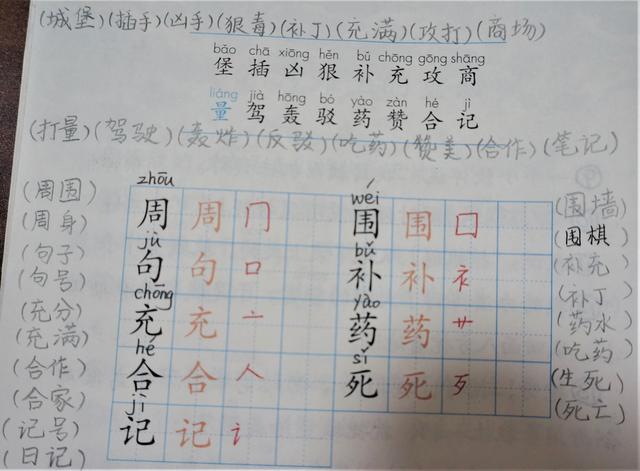 (城堡)(插手)(凶手)(狠毒)(补丁)(充满)(攻打)(商场)
bǎo chā xiōng hěn bǔ chōng gōng shāng
堡 插 凶 狠 补 充 攻 商
liáng jià hōng bó yào zàn hé jì
量 驾 轰 驳 药 赞 合 记
(打量)(驾驶)(轰炸)(反驳)(吃药)(赞美)(合作)(笔记)
(周围) zhōu wéi (围墙)
(周身) 周 周 冂 围 围 囗 (围棋)
(句子) jù bǔ (补充)
(句号) 句 句 口 补 补 衤 (补丁)
(充分) chōng yào (药水)
(充满) 充 充 亠 药 药 艹 (吃药)
(合作) hé sǐ (生死)
(合家) 合 合 人 死 死 歹 (死亡)
(记号) jì
(日记) 记 记 讠